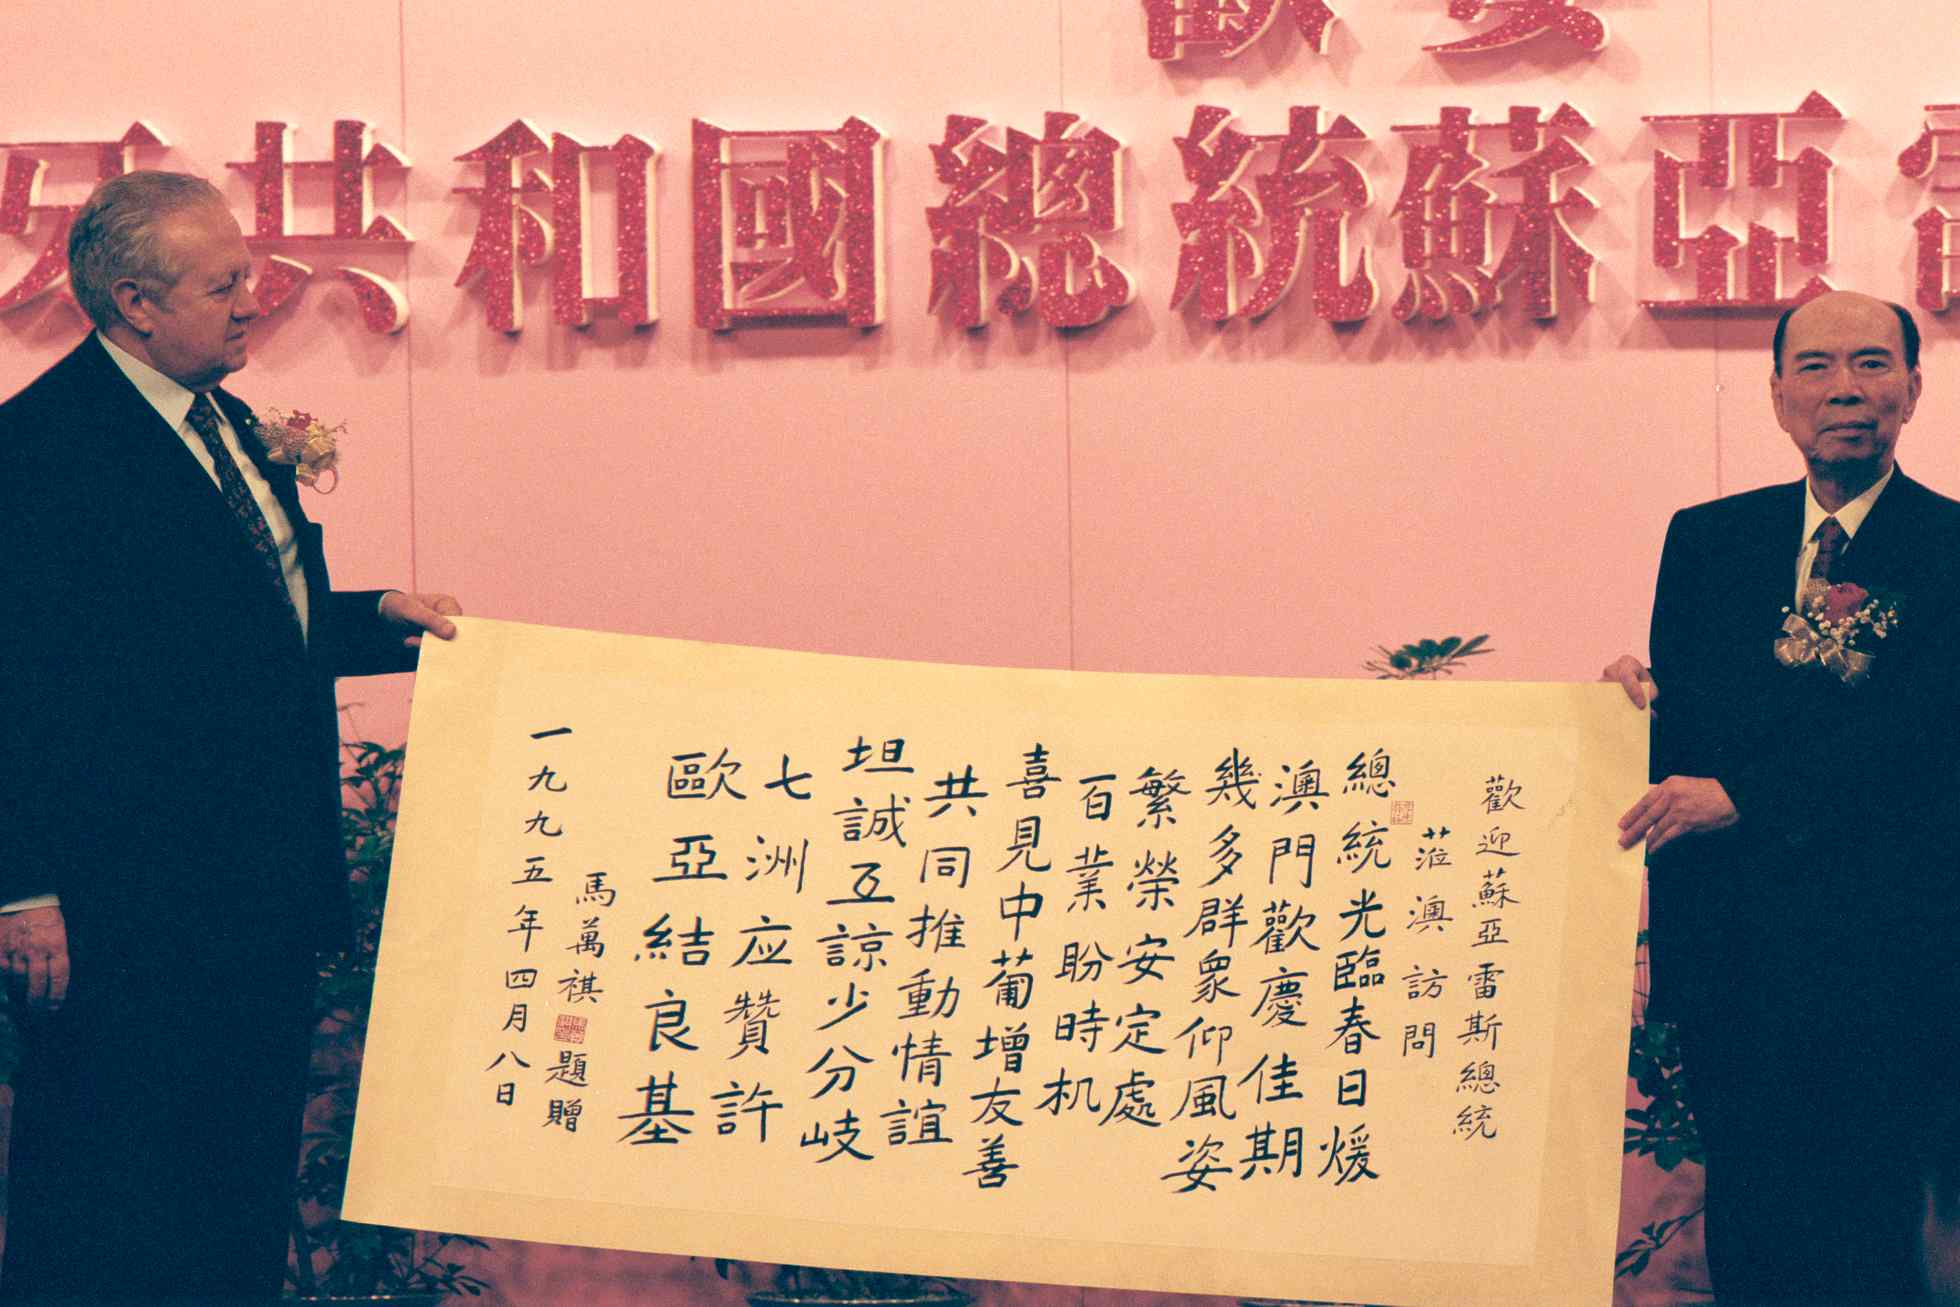 歡宴
牙共和國總統蘇亞雷
歡迎蘇亞雷斯總統
蒞澳訪問
總統光臨春日煖
澳門歡慶佳期
幾多群衆仰風姿
繁榮安定處
百業盼時机
喜見中葡增友善
共同推動情誼
坦誠互諒少分岐
七洲应贊許
歐亞結良基
馬萬祺題贈
一九九五年四月八日